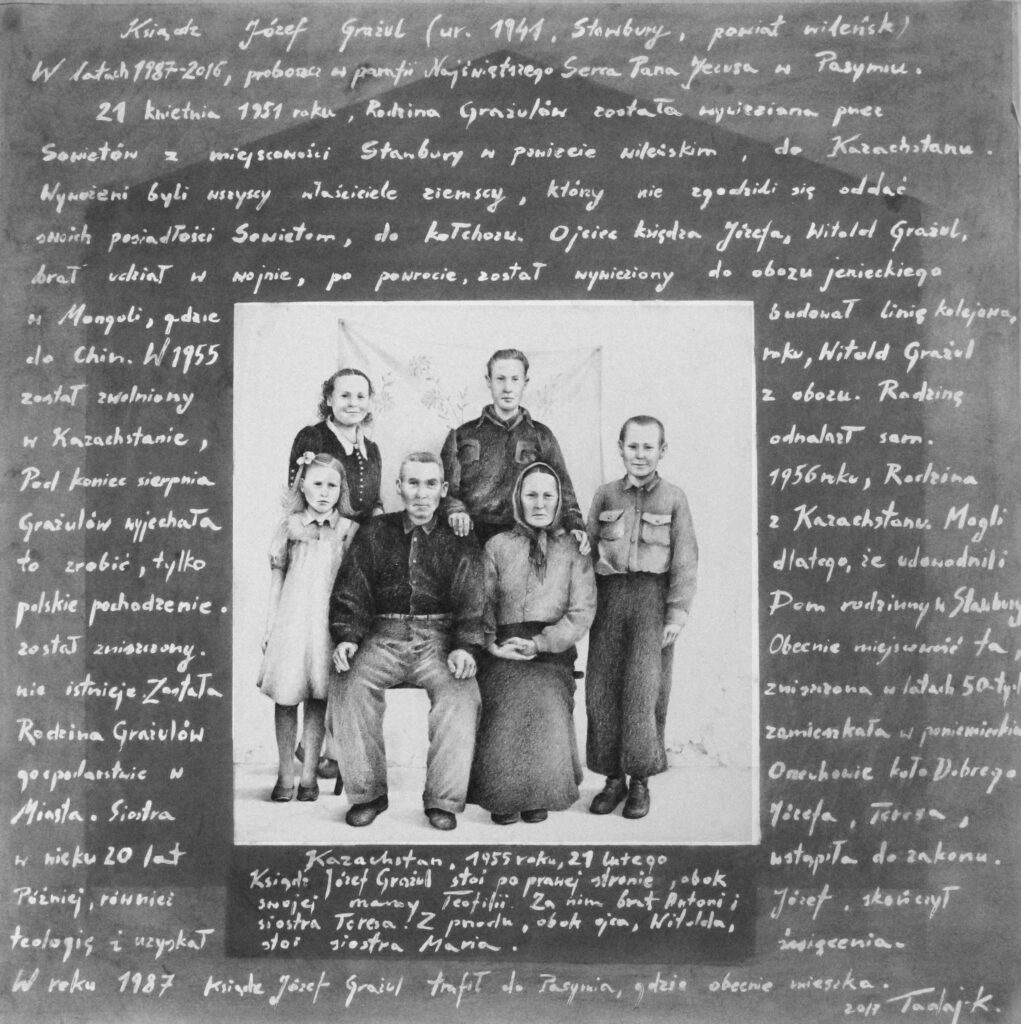 Ksiądz Józef Grażul (ur. 1941, Stambury, powiat wileńsk)
W latach 1987-2016, proboszcz w parafii Najświętszego Serca Pana Jezusa w Pasymiu.
21 kwietnia 1951 roku, Rodzina Grażulów została wywieziana przez
Sowietów z miejscowości Stambury w powiecie wileńskim, do Kazachstanu.
Wywożeni byli wszyscy właściciele ziemscy, którzy nie zgodzili się oddać
swoich posiadłości Sowietom, do kołchozu. Ojciec księdza Józefa, Witold Grażul,
brał udział w wojnie, po powrocie, został wywieziony do obozu jenieckiego
w Mongoli, gdzie budował linię kolejową,
do Chin. W 1955 roku, Witold Grażul
został zwolniony z obozu. Rodzinę
w Kazachstanie, odnalazł sam.
Pod koniec sierpnia 1956 roku, Rodzina
Grażulów wyjechała z Kazachstanu. Mogli
to zrobić, tylko dlatego, że udowodnili
polskie pochodzenie. Dom rodzinny w Stambury
został zniszczony. Obecnie miejscowość ta,
nie istnieje. Została zniszczona w latach 50-tych
Rodzina Grażulów zamieszkała w poniemieckim
gospodarstwie w Orzechowie koło Dobrego
Miasta. Siostra Józefa, Teresa,
w wieku 20 lat wstąpiła do zakonu.
Później, również Józef, skończył
teologię i uzyskał święcenia.
W roku 1987 ksiądz Józef Grażul trafił do Pasymia, gdzie obecnie mieszka.
Kazachstan, 1955 roku, 21 lutego
Ksiądz Józef Grażul stoi po prawej stronie, obok
swojej mamy Teofilii. Za nim brat Antoni i
siostra Teresa. Z przodu, obok ojca, Witolda,
stoi siostra Maria.
2017 Tadaj-K.